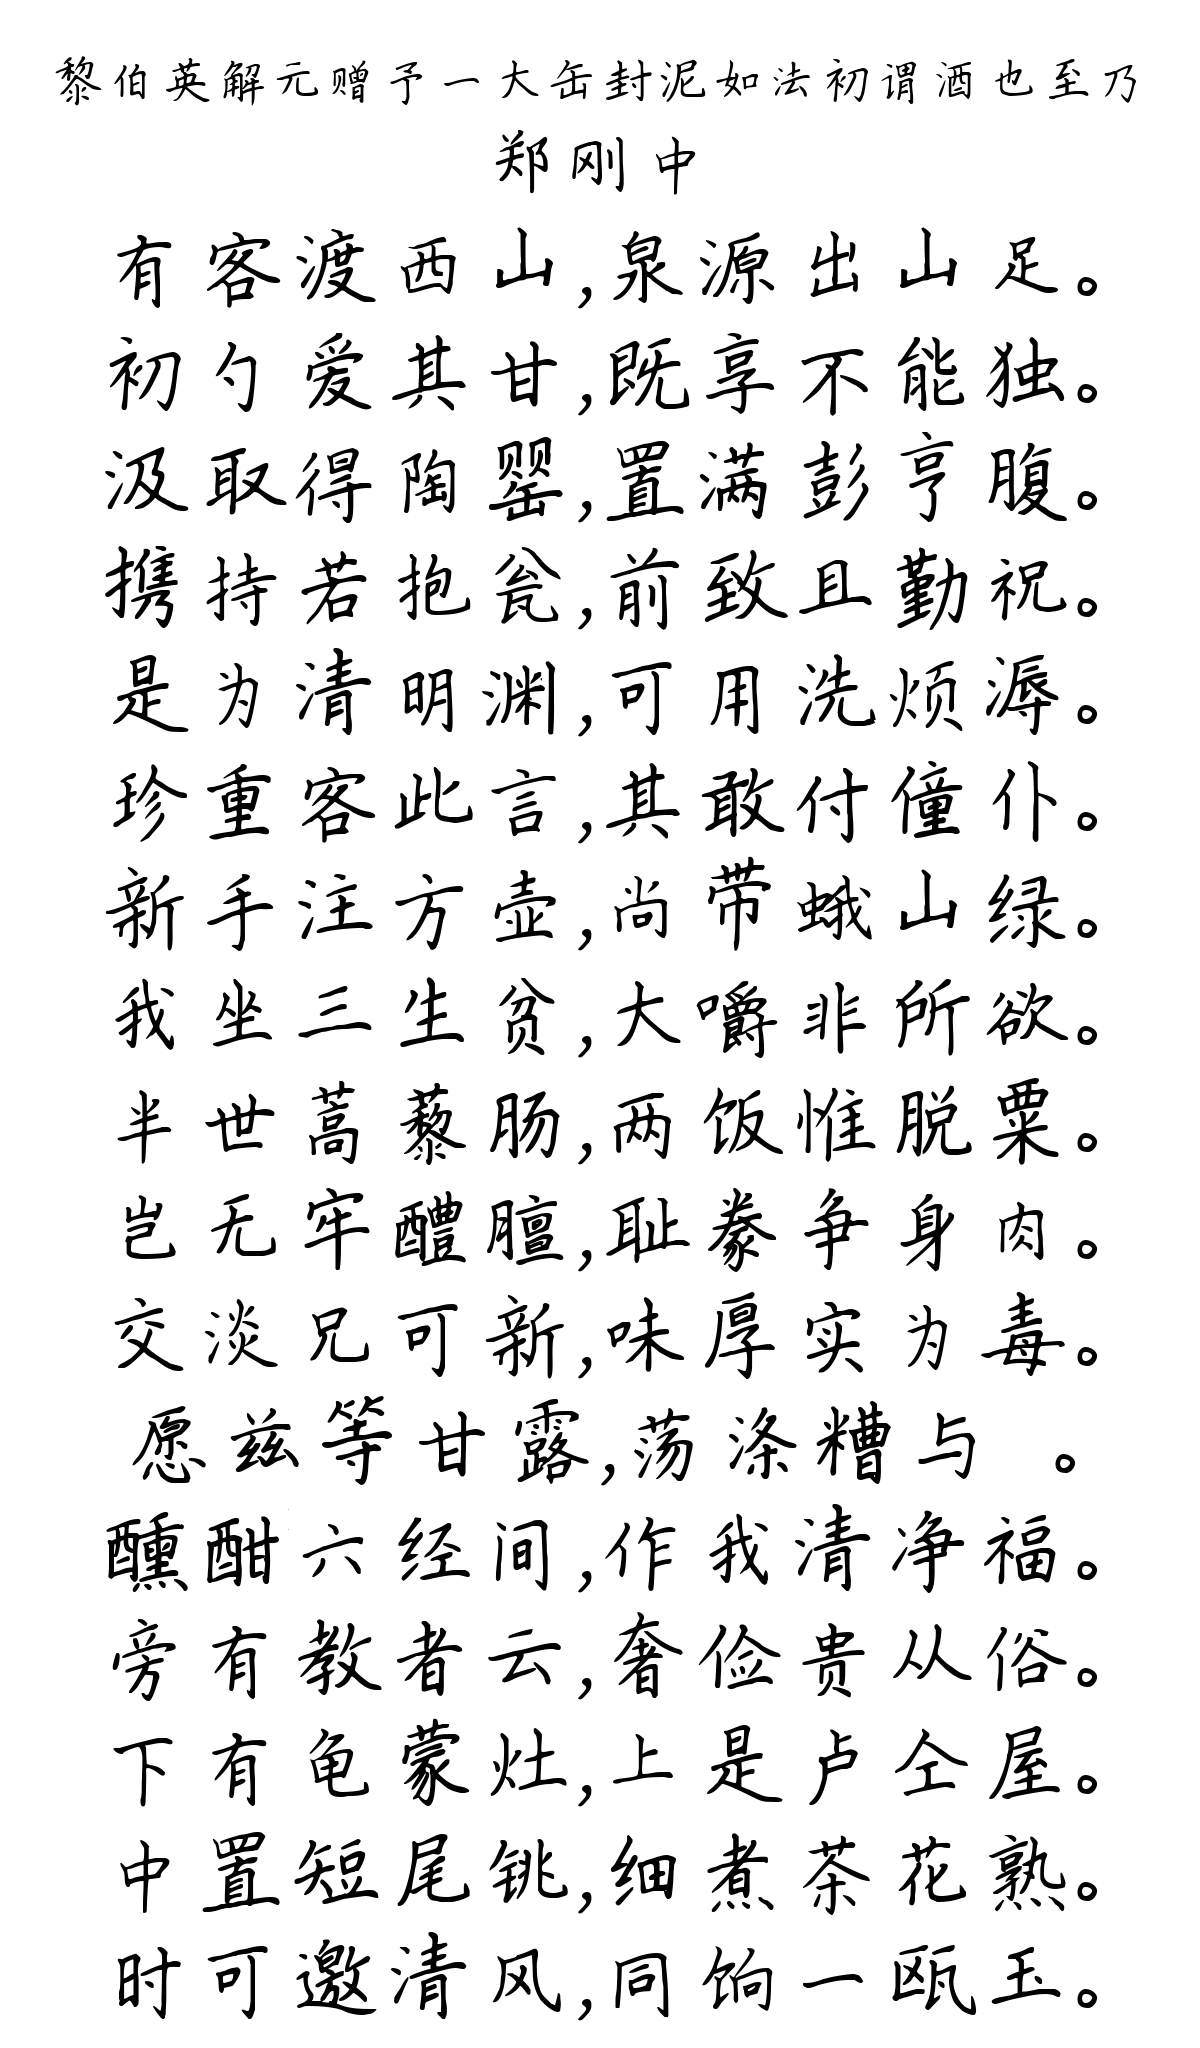 黎伯英解元赠予一大缶封泥如法初谓酒也至乃
郑刚中
有客渡西山,泉源出山足。
初勺爱其甘,既享不能独。
汲取得陶罂,置满彭亨腹。
携持若抱瓮,前致且勤祝。
是为清明渊,可用洗烦溽。
珍重客此言,其敢付僮仆。
新手注方壶,尚带蛾山绿。
我坐三生贫,大嚼非所欲。
半世蒿藜肠,两饭惟脱粟。
岂无牢醴膻,耻豢争身肉。
交淡兄可新,味厚实为毒。
愿兹等甘露,荡涤糟与 。
醺酣六经间,作我清净福。
旁有教者云,奢俭贵从俗。
下有龟蒙灶,上是卢仝屋。
中置短尾铫,细煮茶花熟。
时可邀清风,同饷一瓯玉。